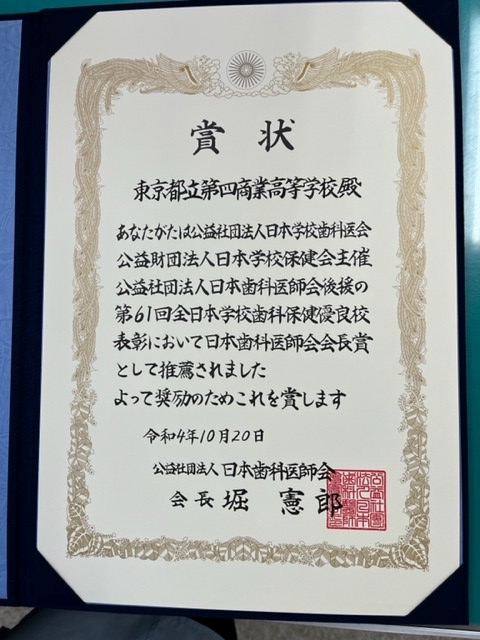 賞状
東京都立第四商業高等学校殿
あなたがたは公益社団法人日本学校歯科医会
公益財団法人日本学校保健会主催
公益社団法人日本歯科医師会後援の
第61回全日本学校歯科保健優良校
表彰において日本歯科医師会会長賞
として推薦されました
よって奨励のためこれを賞します
令和4年10月20日
公益社団法人日本歯科医師会
会長 堀 憲郎